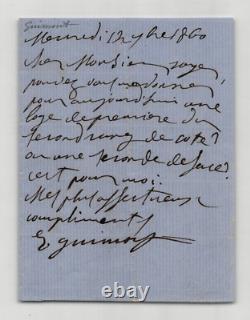 Guimont
Mercredi 12 9bre 1860
Cher Monsieur
pouvez vous me donner
pour aujourd'hui une
loge de première du
second rang de coté
ou une seconde de face?
c'est pour moi.
Mes plus affectueux
compliments
E guimont
© thumbimg.com